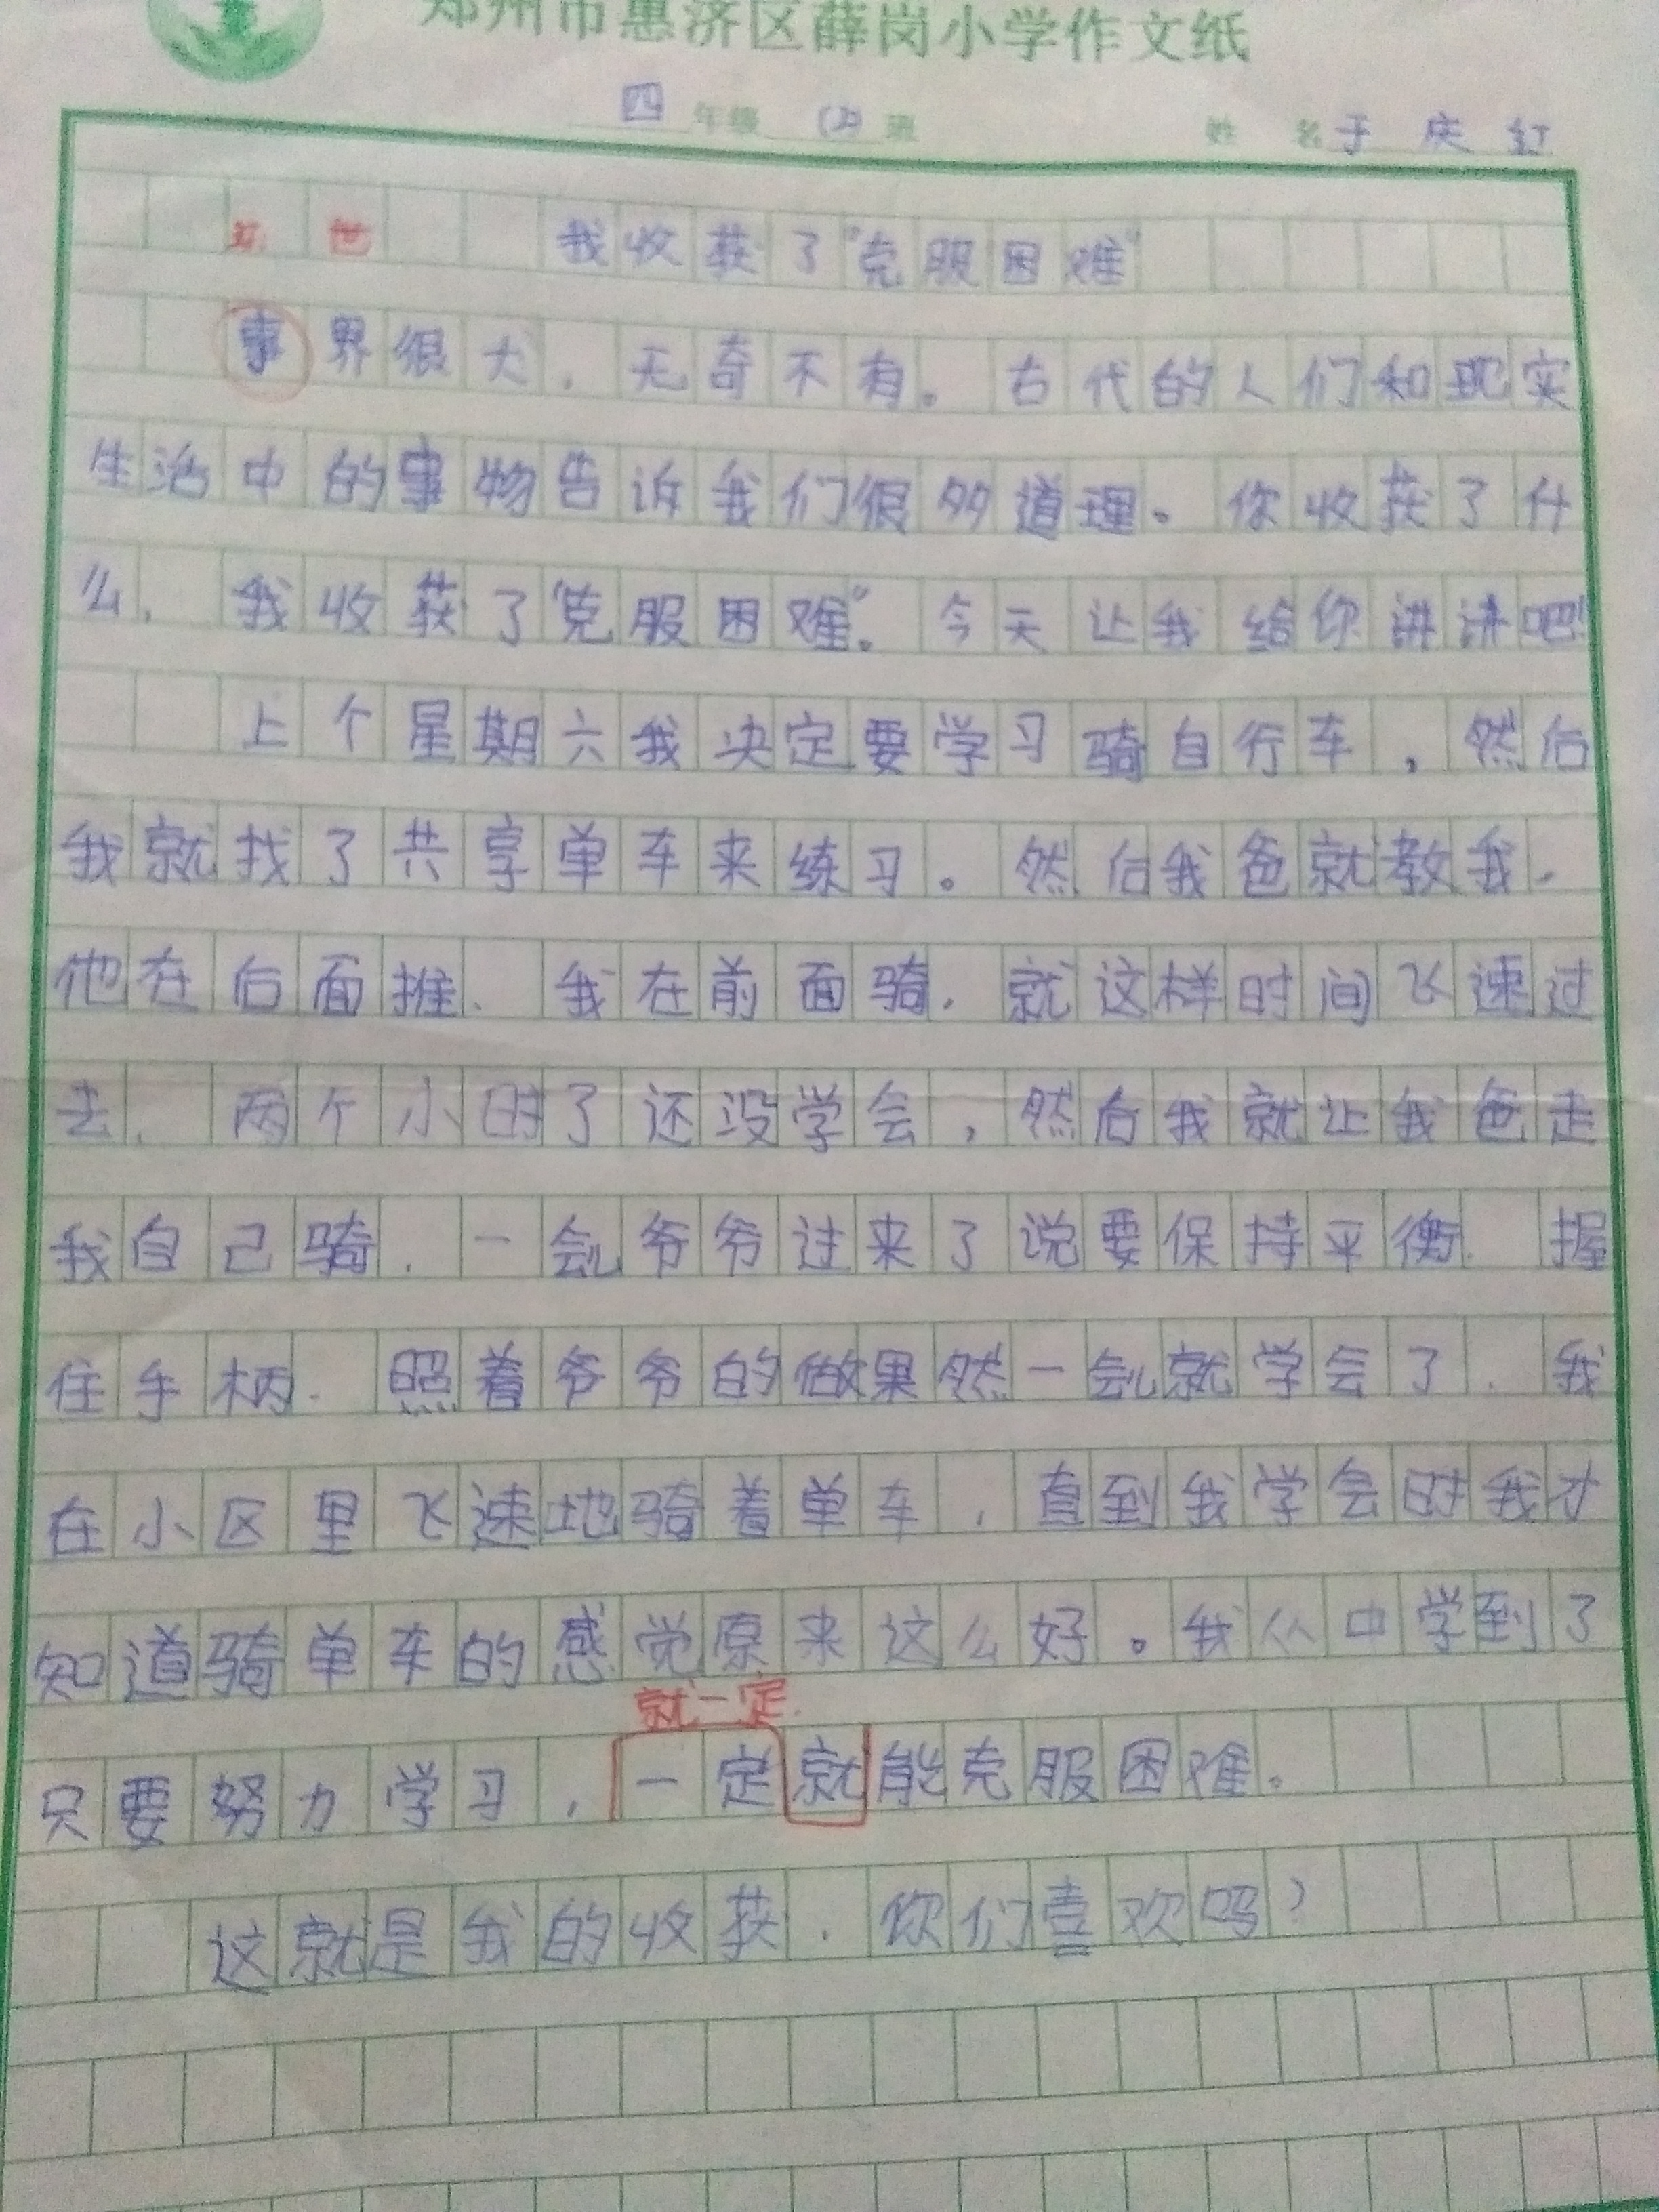 郑州市惠济区薛岗小学作文纸
四年级(2)班 姓名于庆红
世 我收获了“克服困难”
事界很大，无奇不有。古代的人们和现实
生活中的事物告诉我们很多道理。你收获了什
么，我收获了“克服困难”。今天让我给你讲讲吧！
上个星期六我决定要学习骑自行车，然后
我就找了共享单车来练习。然后我爸就教我。
他在后面推，我在前面骑，就这样时间飞速过
去，两个小时了还没学会，然后我就让我爸走
我自己骑，一会儿爷爷过来了说要保持平衡，握
住手柄，照着爷爷的做果然一会儿就学会了，我
在小区里飞速地骑着单车，直到我学会时我才
知道骑单车的感觉原来这么好。我从中学到了
就一定
只要努力学习，一定就能克服困难。
这就是我的收获，你们喜欢吗？